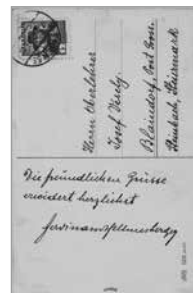 Herrn Oberlehrer
Josef Wesely.
Blaindorf, Post Gross.
Steinbach, Steiermark
Die freundlichen Grüsse
erwidert herzlichst